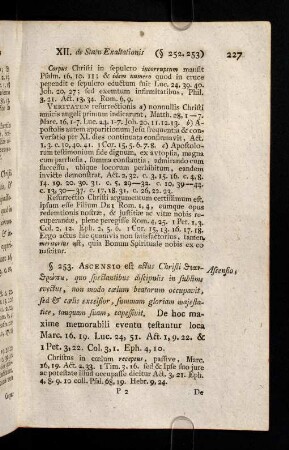 XII. de Statu Exaltationis (§ 252, 253) 227
Corpus Christi in sepulcro incorruptum mansit
Psalm. 16, 10. 11; & idem numero quod in cruce
pependit e sepulcro eductum fuit: Luc. 24, 39. 40.
Joh. 20, 27; sed exemtum infirmitatibus, Phil.
3, 21. Act. 13, 34. Rom. 6, 9.
VERITATEM resurrectionis a) nonnullis Christi
amicis angeli primum indicarunt, Matth. 28, 1–7.
Marc. 16, 1-7. Luc. 24, 1-7. Joh. 20, 11. 12. 13. b) A-
postolis autem apparitionum Jesu frequentia & con-
versatio per XL. dies continuata confirmavit, Act.
1, 3. c. 10, 40. 41. 1 Cor. 15, 5. 6. 7. 8. c) Apostolo-
rum testimonium fide dignum, ex αυτοψια, magna
cum παρρησια, summa constantia, admirando cum
successu, ubique locorum perhibitum, eandem
invicte demonstrat, Act. 2, 32. c. 3, 15. 16. c. 4, 8.
14. 19. 20. 30. 31. c. 5, 29–32. c. 10, 39–44.
c. 13, 30–37. c. 17, 18. 31. c. 26, 22. 23.
Resurrectio Christi argumentum certissimum est,
ipsum esse Filium Dei Rom. 1, 4, eumque opus
redemtionis nostræ, & justitiæ ac vitæ nobis re-
cuperandæ, plene peregisse Rom. 4, 25. 1 Pet. 1, 3.
Col. 2, 12. Eph. 2, 5. 6. 1 Cor. 15, 13. 16. 17. 18.
Ergo actus hic quamvis non satisfactorius, tamen
meritorius est, quia Bonum Spirituale nobis ex eo
nascitur.
§ 253. ASCENSIO est actus Christi Θεαν- Ascensio,
θρωπου, quo spectantibus discipulis in sublime
evectus, non modo cœlum beatorum occupavit,
sed & cœlis excelsior, summam gloriam majesta-
tice, tanquam suam, capessivit. De hoc ma-
xime memorabili eventu testantur loca
Marc. 16, 19. Luc. 24, 51. Act. 1, 9. 22. &
1 Pet. 3, 22. Col. 3, 1. Eph. 4, 10.
Christus in cœlum receptus, passive, Marc.
16, 19. Act. 2, 33. 1 Tim. 3, 16. sed & ipse suo jure
ac potestate illud occupasse dicitur Act. 3, 21. Eph.
4, 8. 9. 10 coll. Psal. 68, 19. Hebr. 9, 24.
P 2 De